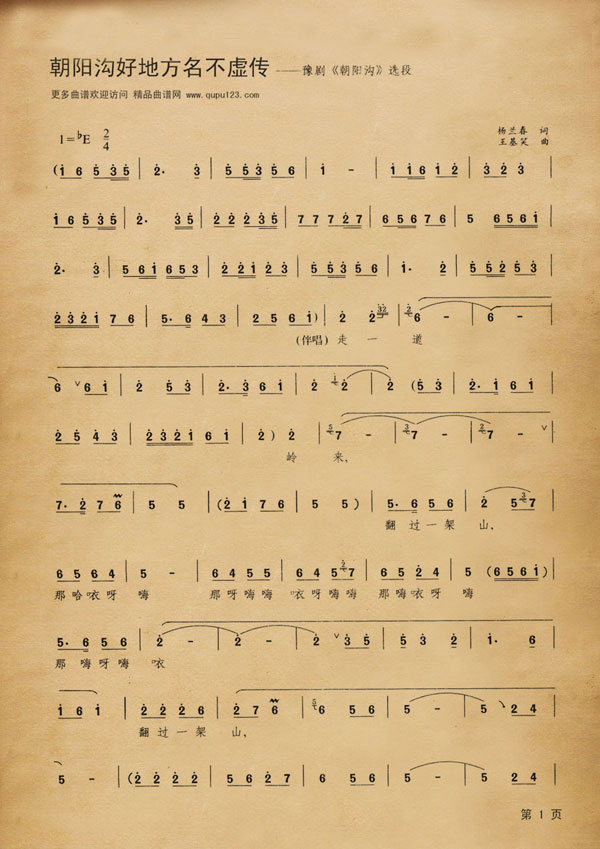 朝阳沟好地方名不虚传 ——豫�《朝阳沟》选段
更多曲谱欢迎访问 精品曲谱网 www.qupu123.com
杨兰春 词
1=♭E 2/4
王基笑 曲
(i 6 5 3 5 | 2· 3 | 5 5 3 5 6 | i - | i i 6 i 2 | 3 2 3 |
i 6 5 3 5 | 2· 3 5 | 2 2 2 3 5 | 7 7 7 2 7 | 6 5 6 7 6 | 5 6 5 6 i |
2· 3 | 5 6 i 6 5 3 | 2 2 i 2 3 | 5 5 3 5 6 | i· 2 | 5 5 2 5 3 |
2 3 2 i 7 6 | 5· 6 4 3 | 2 5 6 i) | 2 2 3 2 | 2 6 - | 6 - |
(伴唱) 走 一 道
6 ∨ 6 i | 2 5 3 | 2· 3 6 i | 2 2 | 2 (5 3 | 2· i 6 i |
2 5 4 3 | 2 3 2 i 6 i | 2) 2 | 5 7 - | 3 7 - | 2 7 - ∨ |
岭 来,
7· 2 7 6 | 5 5 | (2 i 7 6 | 5 5) | 5· 6 5 6 | 2 5 3 7 |
翻过一架 山,
6 5 6 4 | 5 - | 6 4 5 5 | 6 4 5 7 | 6 4 2 4 | 5 (6 5 6 i) |
那哈衣呀 嗨 那呀嗨嗨 衣呀嗨嗨 那嗨衣呀 嗨
5· 6 5 6 | 2 - | 2 - | 2 ∨ 3 5 | 5 3 2 | i· 6 |
那嗨呀嗨 衣
i 6 i | 2 2 2 6 | 2 7 6 | 6 5 6 | 5 - | 5 2 4 |
翻过一架 山,
5 - | (2 2 2 2 | 5 6 2 7 | 6 5 6 | 5 - | 5 2 4 |
第 1 页